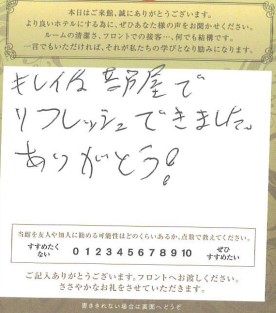 本日はご来館、誠にありがとうございます。
より良いホテルにする為に、ぜひあなた様の声をお聞かせください。
ルームの清潔さ、フロントでの接客…、何でも結構です。
一言でもいただければ、それが私たちの学びとなり励みになります。
キレイな部屋で
リフレッシュできました。
ありがとう!
当館を友人や知人に勧める可能性はどのくらいあるか、点数で教えてください。
すすめたくない 0 1 2 3 4 5 6 7 8 9 10 ぜひすすめたい
ご記入ありがとうございます。フロントへお渡しください。
ささやかなお礼をさせていただきます。
書ききれない場合は裏面へどうぞ